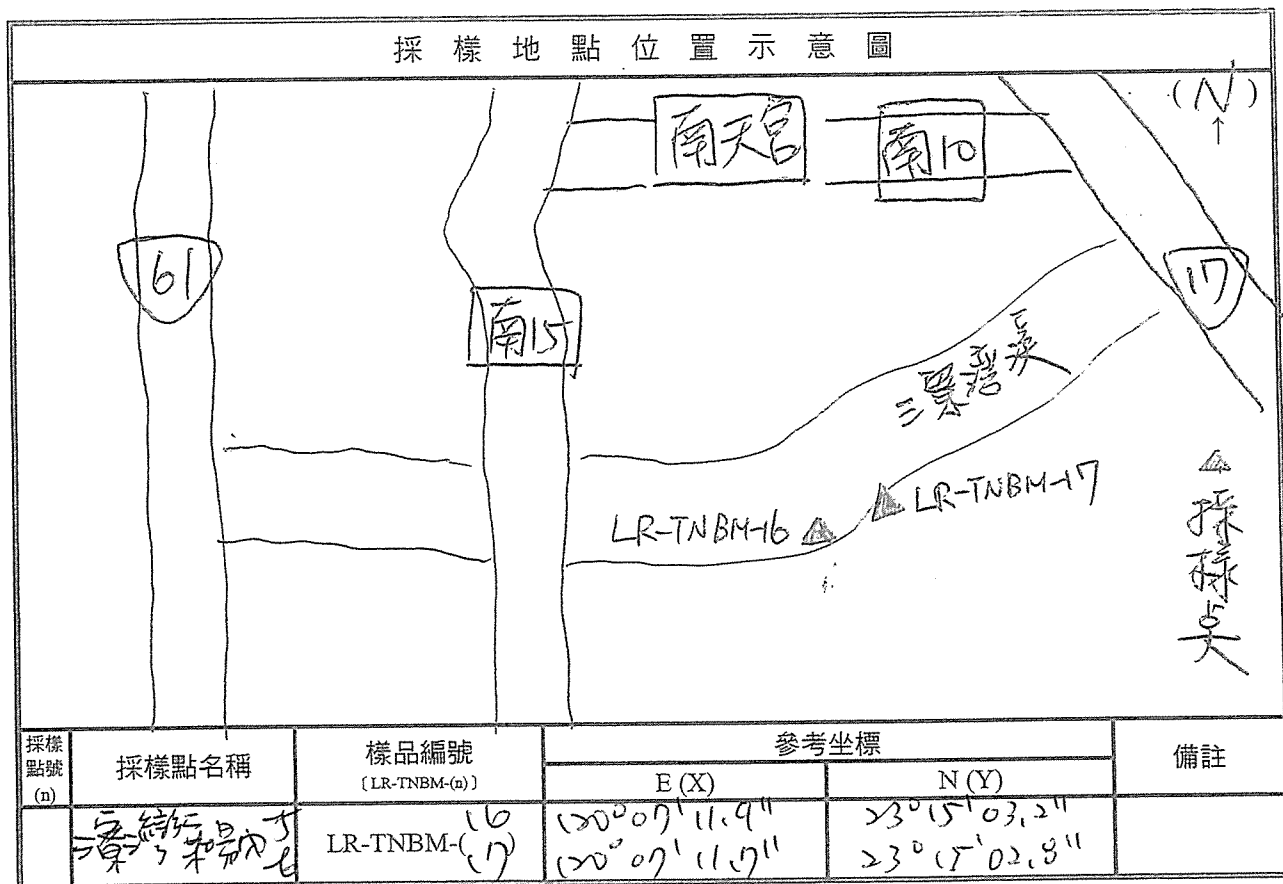 採樣地點位置示意圖
(N)
↑
南天宮
南10
61
南15
17
三寮灣溪
LR-TNBM-16
LR-TNBM-17
採樣点
採樣點號(n)
採樣點名稱
樣品編號
〔LR-TNBM-(n)〕
參考坐標
備註
E (X)
N (Y)
LR-TNBM-(16
17)
120° 07' 11.9"
23° 15' 03.2"
120° 07' 11.7"
23° 15' 02.8"